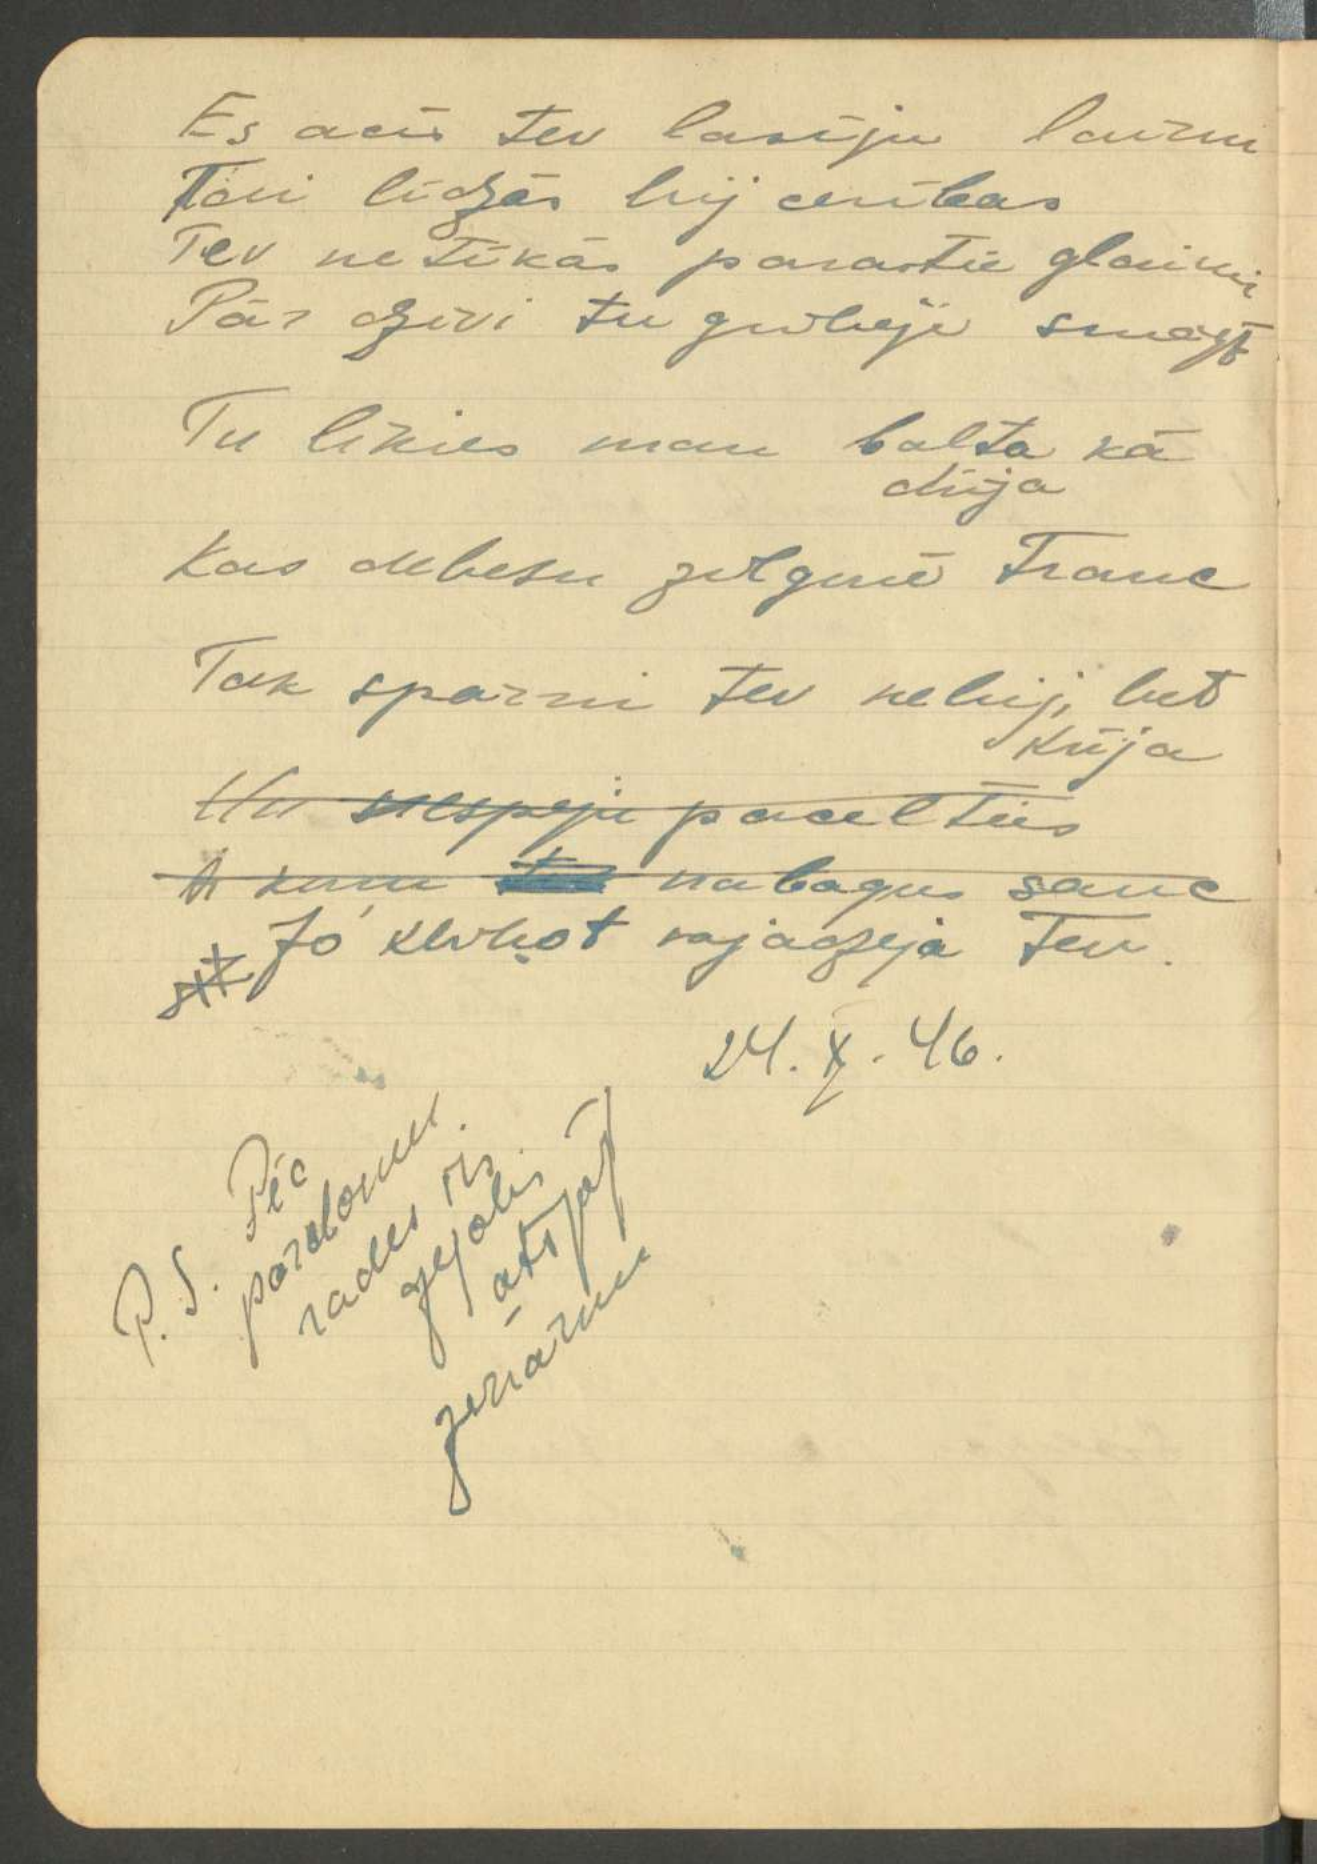 Es acīs tev lasīju laimi
Tavi līdzās bij cerības
Tev netīkās parastie glaimi
Pār dzīvi tu gribēji smagt
Tu likies man balta kā
dūja
Kas debesu zilgmē Tranc
Tak spārni tev nebij, bet
kūja
Un nespēju pacelties
kuru nabagus sanc
Jo klibot vajadzēja Tev.
24. X. 46.
P. S. Pēc
pārdomu.
rades
atstāj